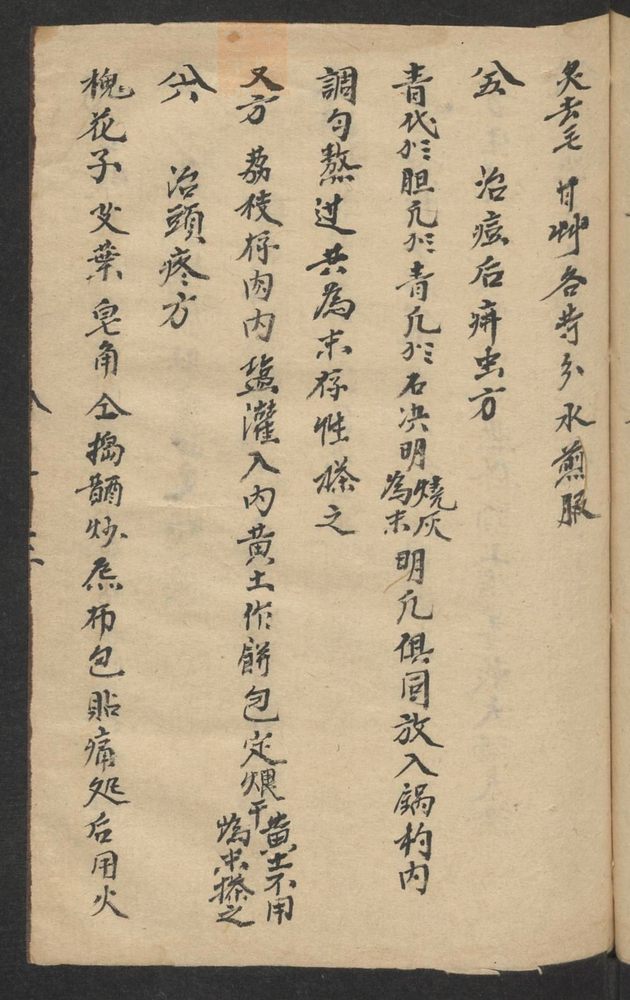 炙去毛 甘艸各等分水煎服
八五 治痘后疳虫方
青代 胆凡 青凡 石决明燒灰為末明凡俱同放入鍋杓内
調匀熬过共為末存性搽之
又方 荔枝存肉内塩灌入内黄土作餅包定煨干黄土不用為末搽之
八六 治頭疼方
槐花子艾葉皂角仝搗 炒 布包貼痛処后用火